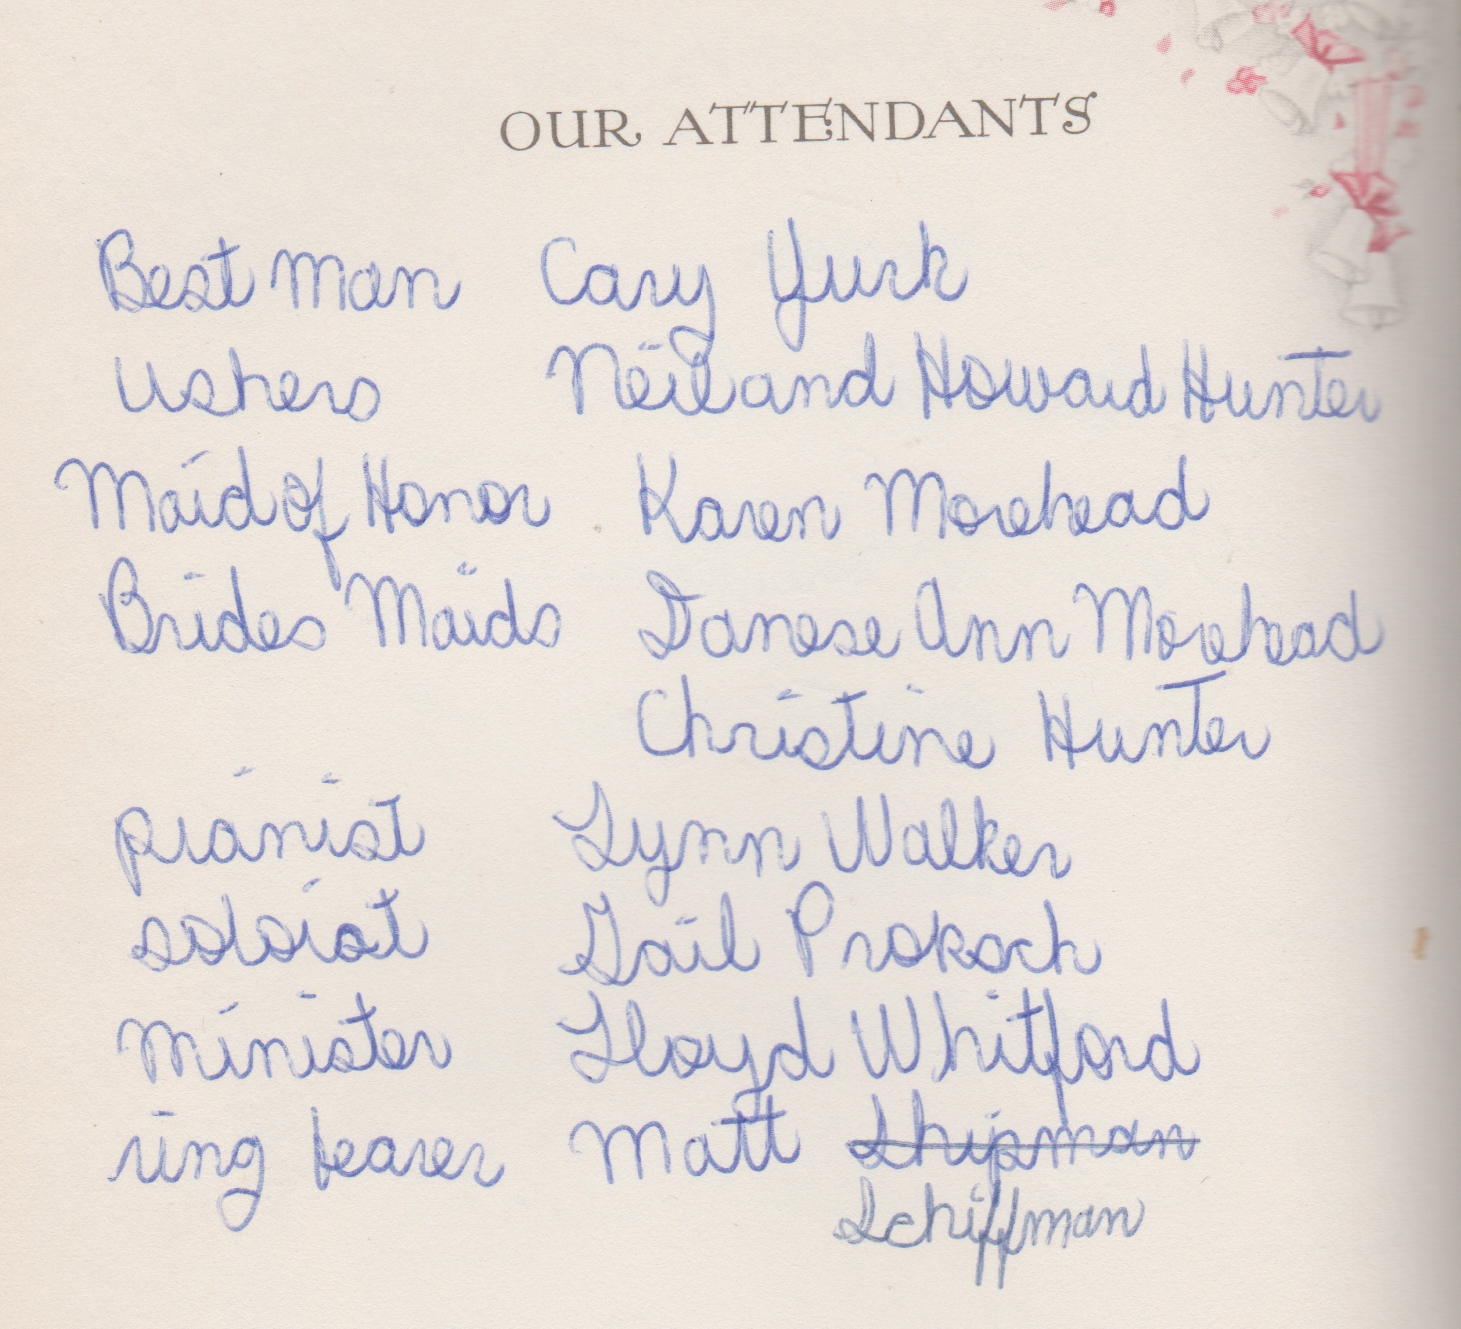 OUR ATTENDANTS
Best Man Cary Yurk
Ushers Neil and Howard Hunter
Maid of Honor Karen Morehead
Brides Maids Danese Ann Morehead
Christine Hunter
pianist Lynn Walker
soloist Gail Prokoch
minister Lloyd Whitford
ring bearer Matt Shipman
Schiffman